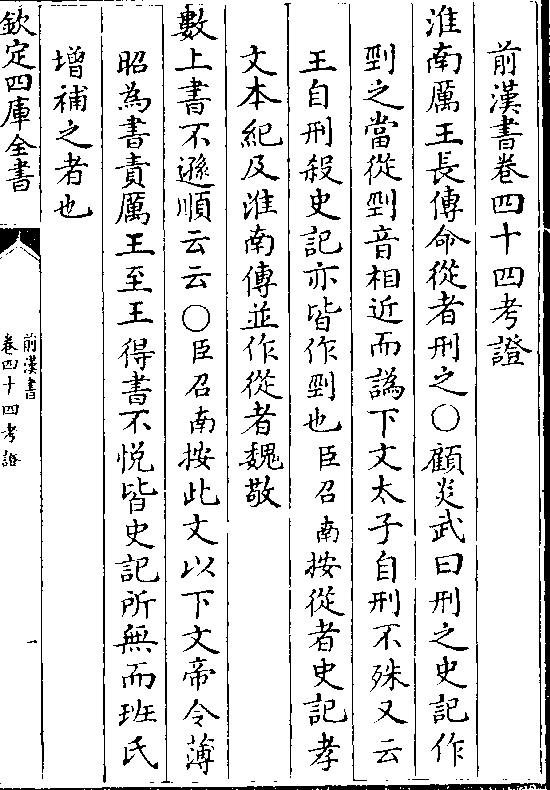 前漢書卷四十四考證
淮南厲王長傳命從者刑之〇顧炎武曰刑之史記作
剄之當從剄音相近而譌下文太子自刑不殊又云
王自刑殺史記亦皆作剄也臣召南按從者史記孝
文本紀及淮南傳並作從者魏敬
數上書不遜順云云〇臣召南按此文以下文帝令薄
昭為書責厲王至王得書不悅皆史記所無而班氏
增補之者也
欽定四庫全書
前漢書
卷四十四考證
一